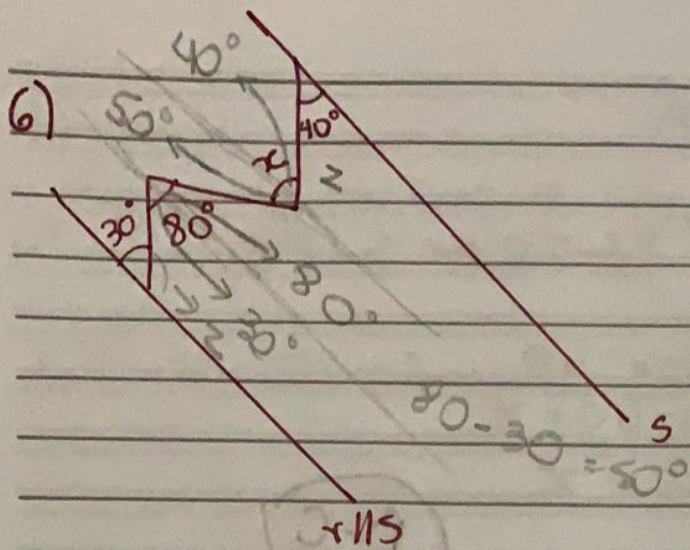 40°
6)
50°
40°
x
N
30°
80°
80°
30°
80-30=50°
s
r||s